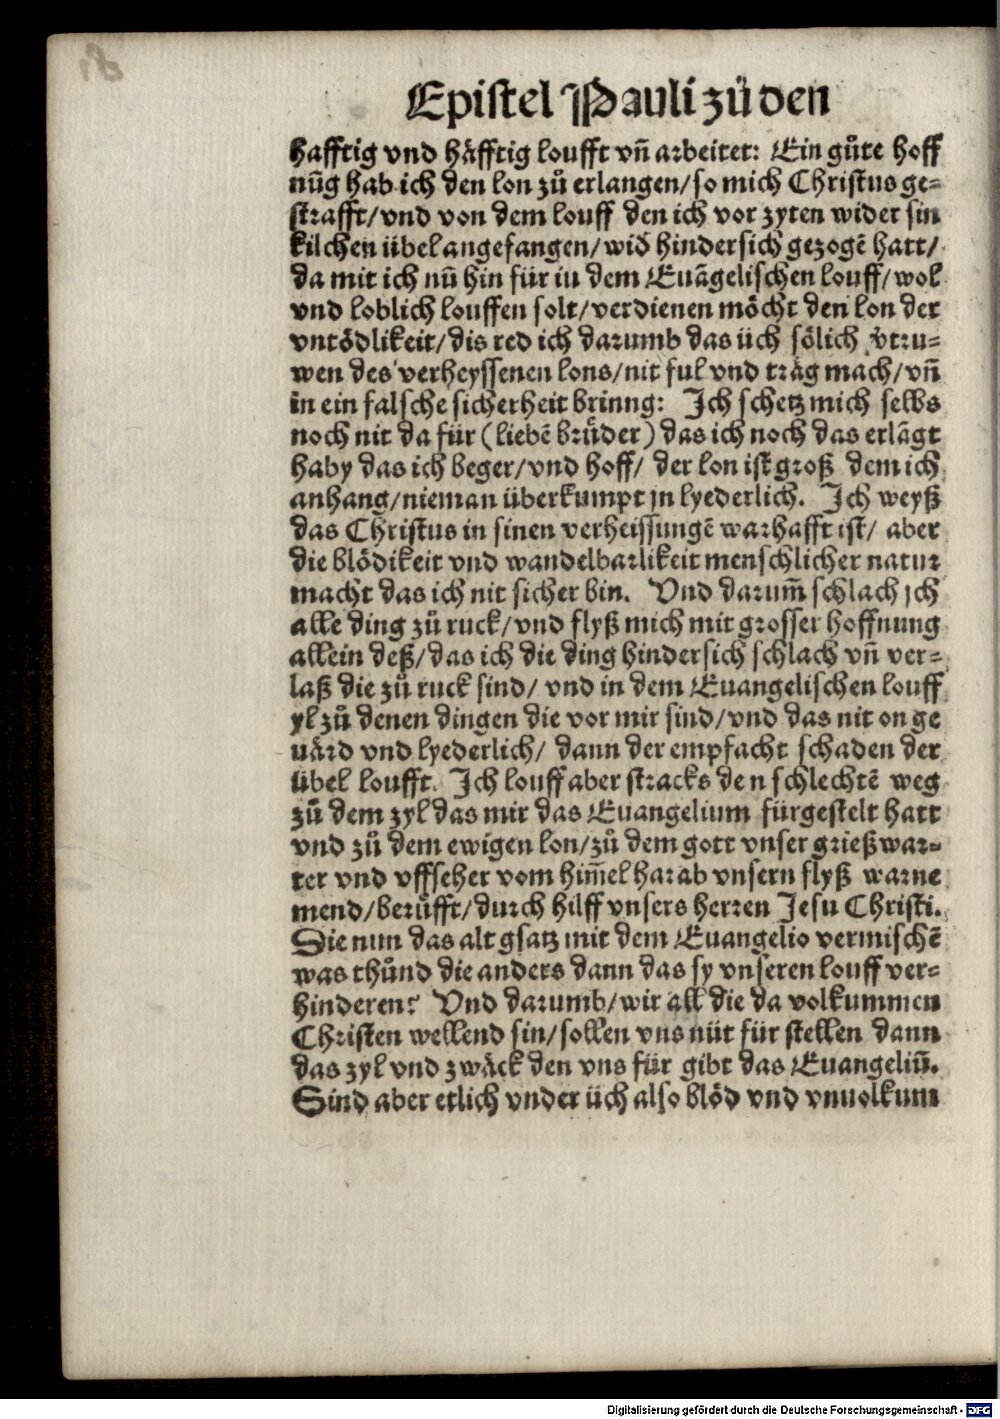 Epistel Pauli zů den
hafftig vnd häfftig loufft vñ arbeitet: Ein gůte hoff
nũg hab ich den lon zů erlangen/so mich Christus ge=
strafft/vnd von dem louff den ich vor zyten wider sin
kilchen übel angefangen/wid̕ hindersich gezogẽ hatt/
da mit ich nũ hin für in dem Euãgelischen louff/wol
vnd loblich louffen solt/verdienen möcht den lon der
vntödlikeit/dis red ich darumb das üch sölich v̕tru=
wen des verheyssenen lons/nit ful vnd träg mach/vñ
in ein falsche sicherheit brinng: Ich schetz mich selbs
noch nit da für (liebẽ brůder) das ich noch das erlãgt
haby das ich beger/vnd hoff/ der lon ist groß dem ich
anhang/nieman überkumpt jn lyederlich. Ich weyß
das Christus in sinen verheissungẽ warhafft ist/ aber
die blödikeit vnd wandelbarlikeit menschlicher natur
macht das ich nit sicher bin. Vnd darum̃ schlach jch
alle ding zů ruck/vnd flyß mich mit grosser hoffnung
allein deß/das ich die ding hindersich schlach vñ ver=
laß die zů ruck sind/ vnd in dem Euangelischen louff
yl zů denen dingen die vor mir sind/vnd das nit on ge
uärd vnd lyederlich/ dann der empfacht schaden der
übel loufft. Ich louff aber stracks den schlechtẽ weg
zů dem zyl das mir das Euangelium fürgestelt hatt
vnd zů dem ewigen lon/zů dem gott vnser grießwar=
ter vnd vffseher vom him̃el harab vnsern flyß warne
mend/berůfft/durch hilff vnsers herren Jesu Christi.
Die nun das alt gsatz mit dem Euangelio vermischẽ
was thůnd die anders dann das sy vnseren louff ver=
hinderen? Vnd darumb/wir all die da volkummen
Christen wellend sin/sollen vns nüt für stellen dann
das zyl vnd zwäck den vns für gibt das Euangeliũ.
Sind aber etlich vnder üch also blöd vnd vnuolkum
Digitalisierung gefördert durch die Deutsche Forschungsgemeinschaft - DFG